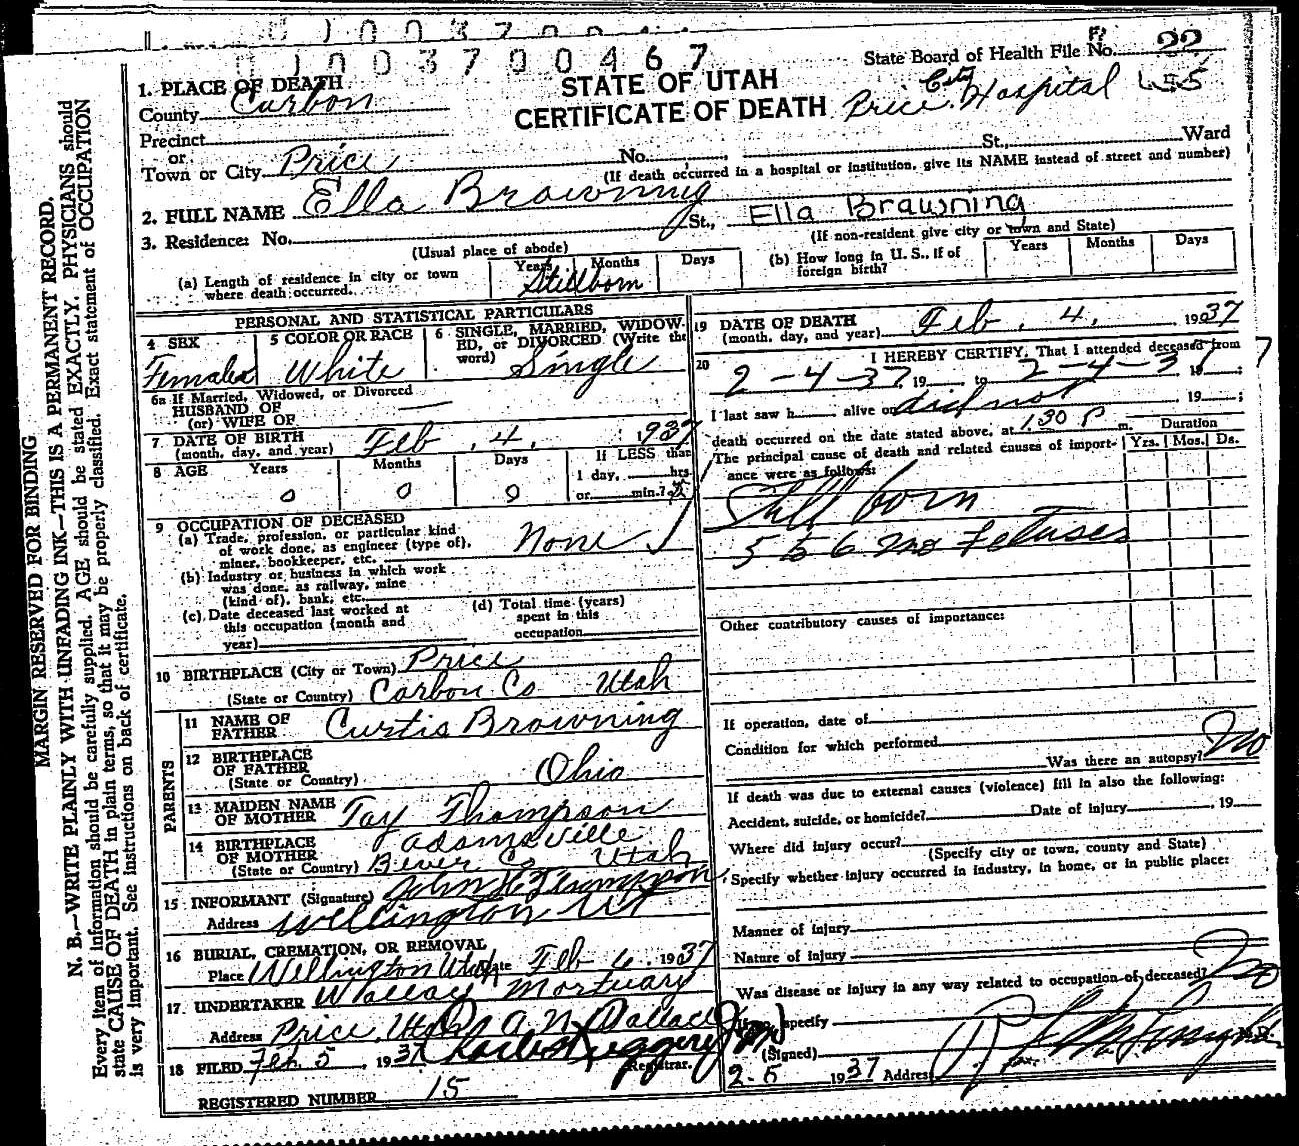 1003700467
State Board of Health File No. 22
1. PLACE OF DEATH
STATE OF UTAH
County Carbon
CERTIFICATE OF DEATH Price City Hospital
Precinct
or
Town or City Price No. St., Ward
(If death occurred in a hospital or institution, give its NAME instead of street and number)
2. FULL NAME Ella Browning
3. Residence: No. St., Ella Brawning
(Usual place of abode) (If non-resident give city or town and State)
(a) Length of residence in city or town where death occurred. Years Months Days Stillborn
(b) How long in U. S., if of foreign birth? Years Months Days
PERSONAL AND STATISTICAL PARTICULARS
4 SEX Female
5 COLOR OR RACE White
6 SINGLE, MARRIED, WIDOWED, or DIVORCED (Write the word) Single
6a If Married, Widowed, or Divorced
HUSBAND OF
(or) WIFE OF
7 DATE OF BIRTH
(month, day, and year) Feb. 4. 1937
8 AGE Years Months Days If LESS than
0 0 0 1 day, hrs.
or min.?
9 OCCUPATION OF DECEASED
(a) Trade, profession, or particular kind
of work done, as engineer (type of), None
miner, bookkeeper, etc.
(b) Industry or business in which work
was done, as railway, mine
(kind of), bank, etc.
(c) Date deceased last worked at
this occupation (month and
year)
(d) Total time (years)
spent in this
occupation
10 BIRTHPLACE (City or Town) Price
(State or Country) Carbon Co Utah
PARENTS
11 NAME OF
FATHER Curtis Browning
12 BIRTHPLACE
OF FATHER
(State or Country) Ohio
13 MAIDEN NAME
OF MOTHER Tay Thompson
14 BIRTHPLACE Adamsville
OF MOTHER
(State or Country) Bever Co Utah
15 INFORMANT (Signature) John H Thompson
Address Wellington Ut
16 BURIAL, CREMATION, OR REMOVAL
Place Wellington Utah Date Feb 4. 1937
17. UNDERTAKER Wallace Mortuary
Address Price, Utah A. N. Wallace
18 FILED Feb. 5 1937 Registrar.
REGISTERED NUMBER 15
19 DATE OF DEATH
(month, day, and year) Feb. 4. 1937
20 I HEREBY CERTIFY, That I attended deceased from
2-4-37, 19 to 2-4-37 19 ;
I last saw h alive on did not 19 ;
death occurred on the date stated above, at 1.30 P m.
The principal cause of death and related causes of importance were as follows:
Duration
Yrs. Mos. Ds.
Still born
5 5 6 mo Fetuses
Other contributory causes of importance:
If operation, date of
Condition for which performed
Was there an autopsy? No
If death was due to external causes (violence) fill in also the following:
Accident, suicide, or homicide? Date of injury , 19
Where did injury occur?
(Specify city or town, county and State)
Specify whether injury occurred in industry, in home, or in public place:
Manner of injury
Nature of injury
Was disease or injury in any way related to occupation of deceased? No
If so, specify
(Signed) M.D.
2-5 1937 Address
MARGIN RESERVED FOR BINDING
N. B.—WRITE PLAINLY WITH UNFADING INK—THIS IS A PERMANENT RECORD.
Every item of information should be carefully supplied. AGE should be stated EXACTLY. PHYSICIANS should
state CAUSE OF DEATH in plain terms, so that it may be properly classified. Exact statement of OCCUPATION
is very important. See instructions on back of certificate.